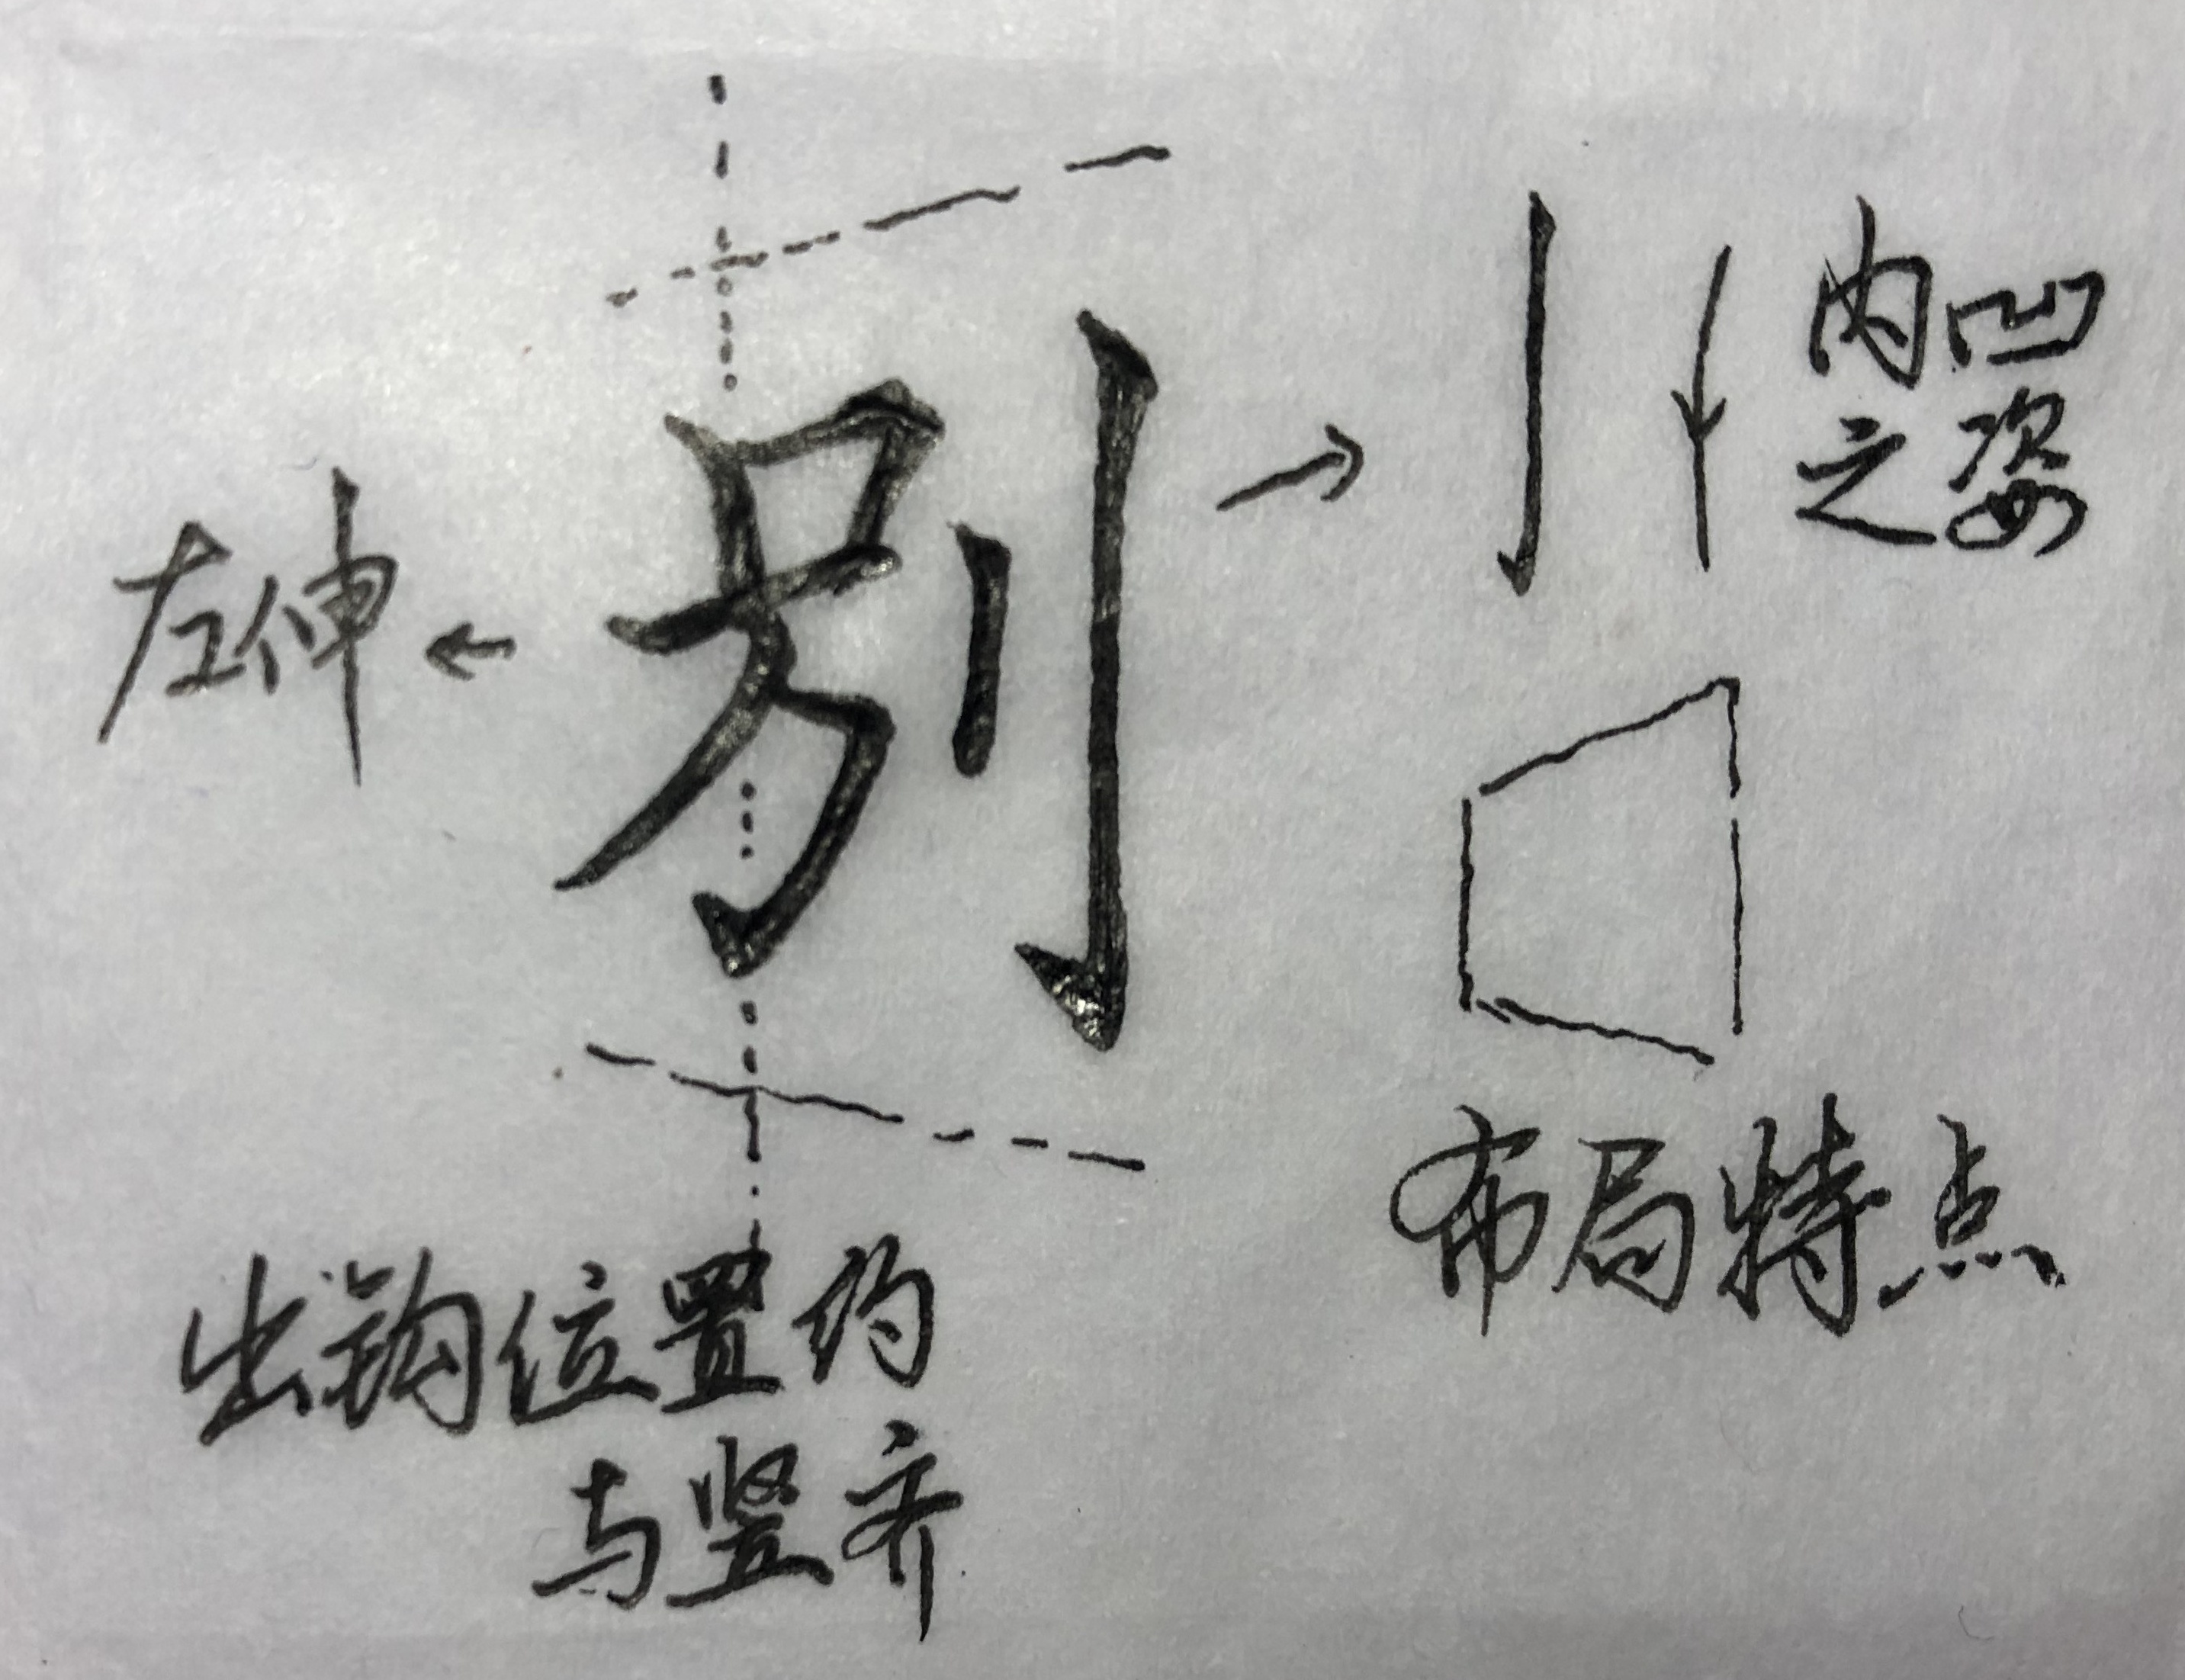 别
左伸
内凹
之姿
布局特点
出钩位置约
与竖齐